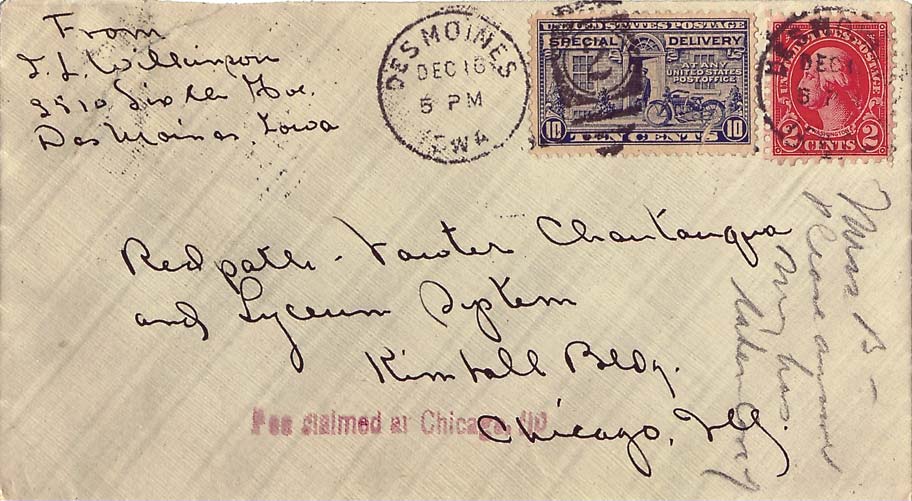 From
L. L. Wilkinson
2510 Sixth Ave.
Des Moines, Iowa
DES MOINES
DEC 16
5 PM
IOWA
UNITED STATES POSTAGE
SPECIAL DELIVERY
AT ANY
UNITED STATES
POST OFFICE
10 TEN CENTS 10
UNITED STATES POSTAGE
WASHINGTON
2 CENTS 2
Redpath-Vawter Chautauqua
and Lyceum System
Kimball Bldg.
Chicago, Ill.
Fee claimed at Chicago, Ill
Miss B -
Please answer